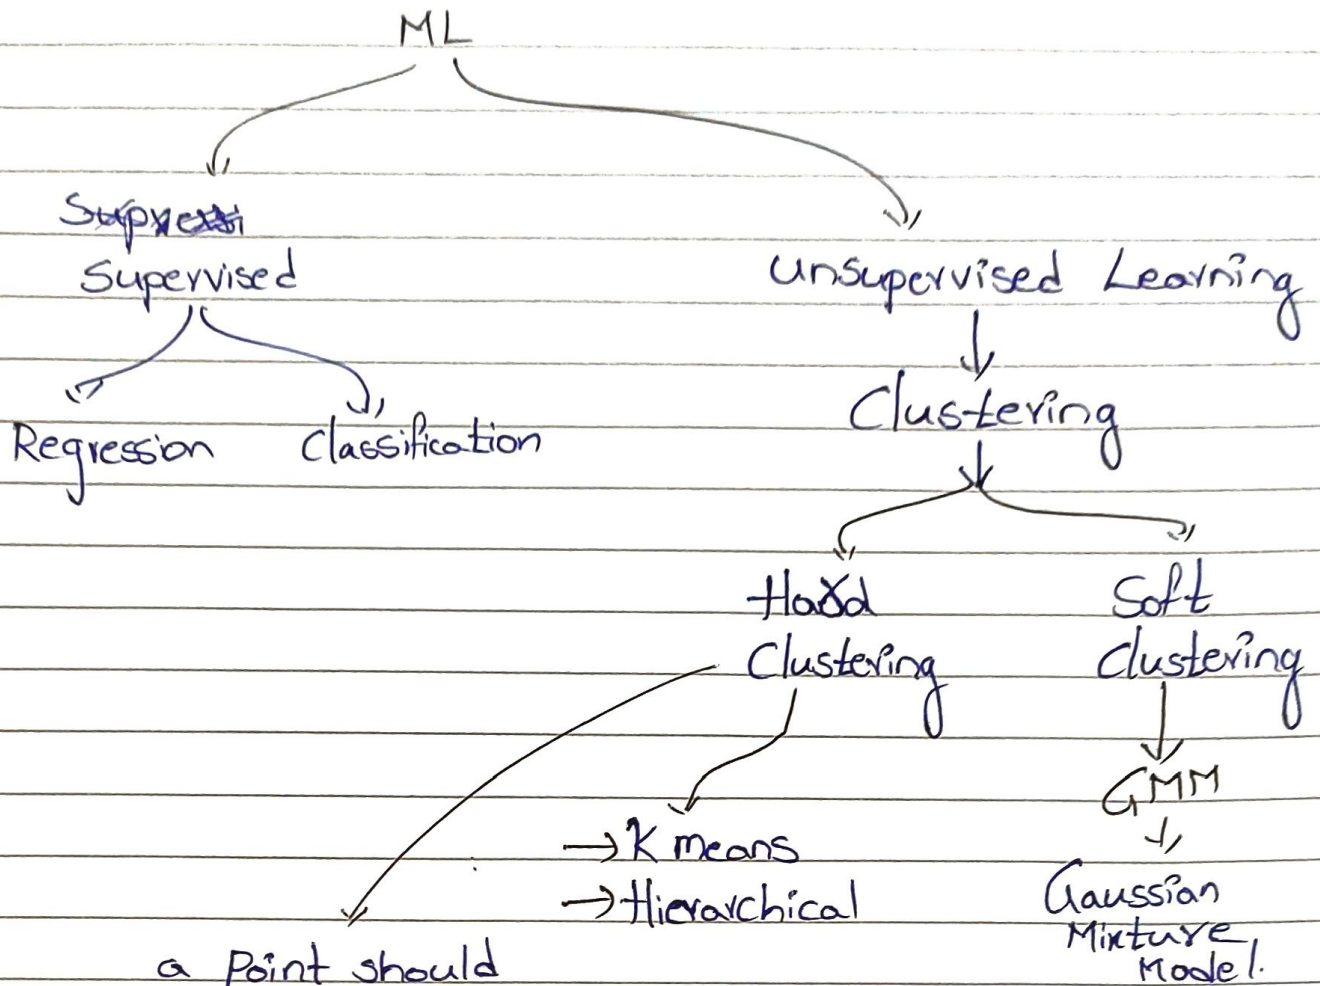 ML
Supervised
Unsupervised Learning
Regression
Classification
Clustering
Hard
Clustering
Soft
Clustering
→ K means
→ Hierarchical
GMM
Gaussian
Mixture
Model.
a Point should